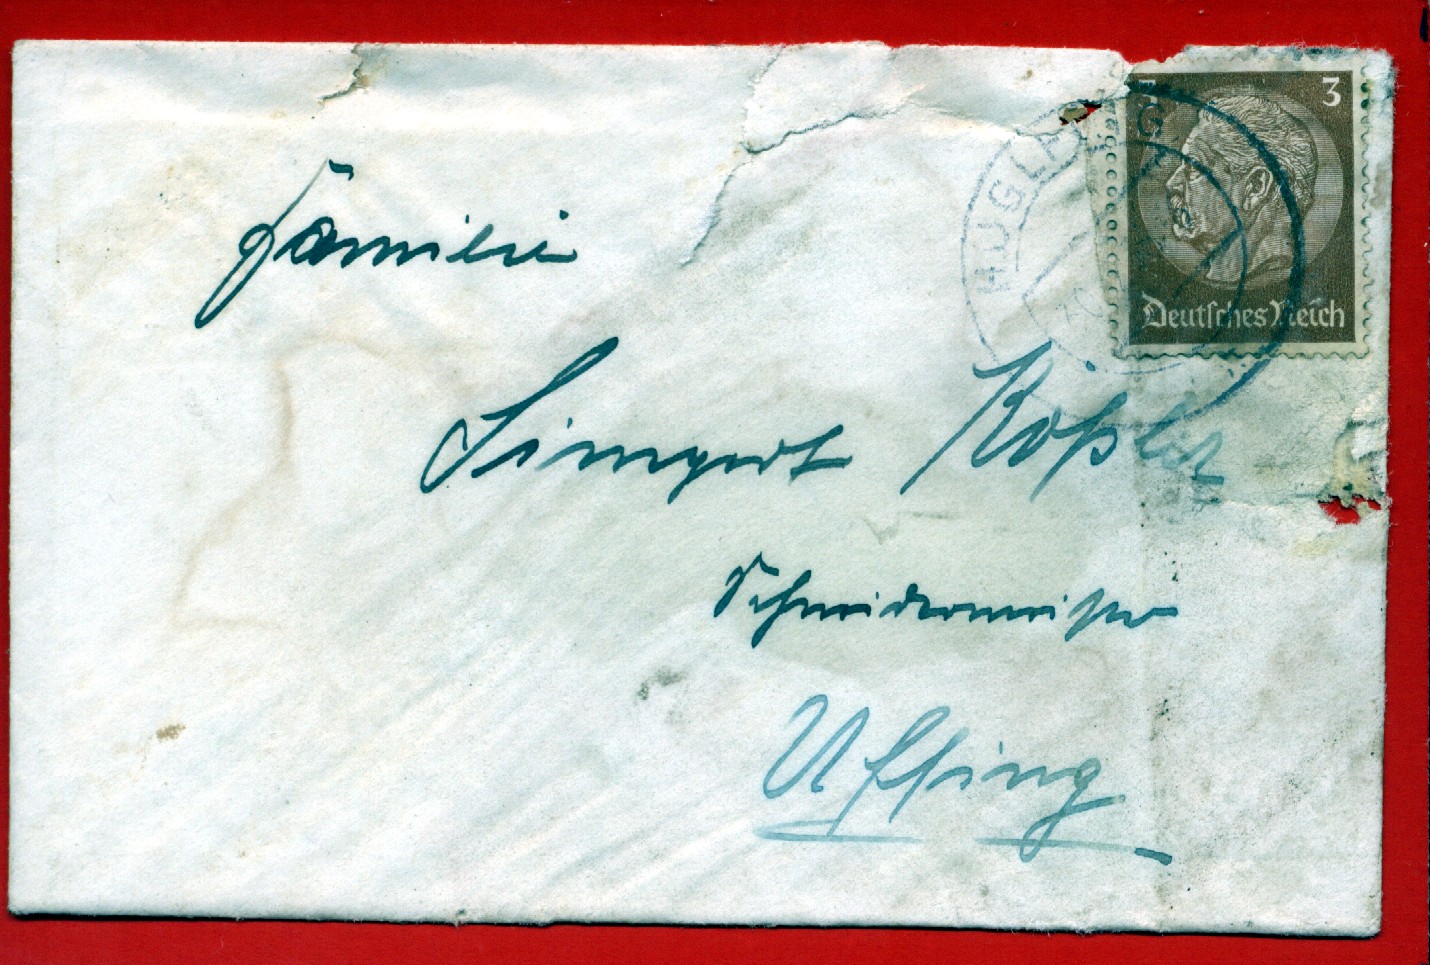 3
Deutsches Reich
HUGLF
Familie
Rößler
Schneidermeister
Uffing